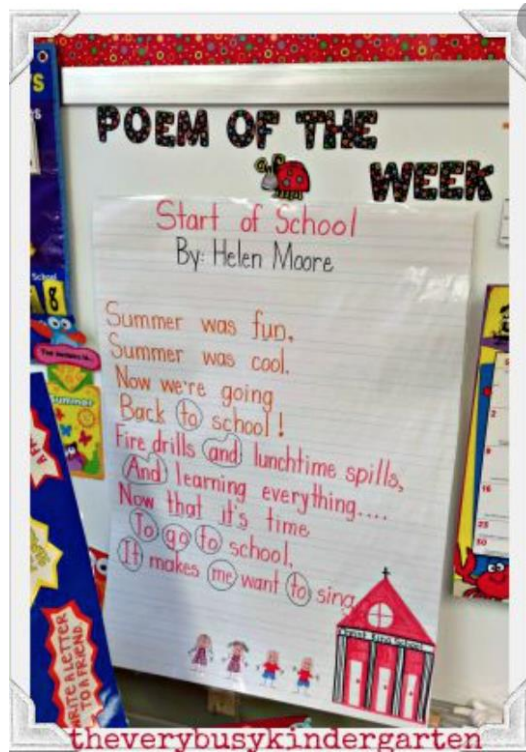 POEM OF THE
WEEK
Start of School
By: Helen Moore
Summer was fun,
Summer was cool.
Now we're going
Back to school!
Fire drills and lunchtime spills,
And learning everything....
Now that it's time
To go to school,
It makes me want to sing.
School
8
Summer
WRITE A LETTER
TO A FRIEND
2
9
16
23
30
Christ King School
theverybusykindergarten